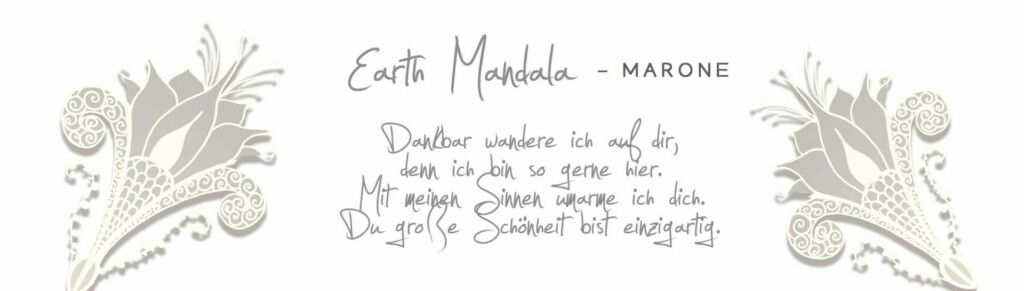 Earth Mandala – MARONE
Dankbar wandere ich auf dir,
denn ich bin so gerne hier.
Mit meinen Sinnen umarme ich dich.
Du große Schönheit bist einzigartig.